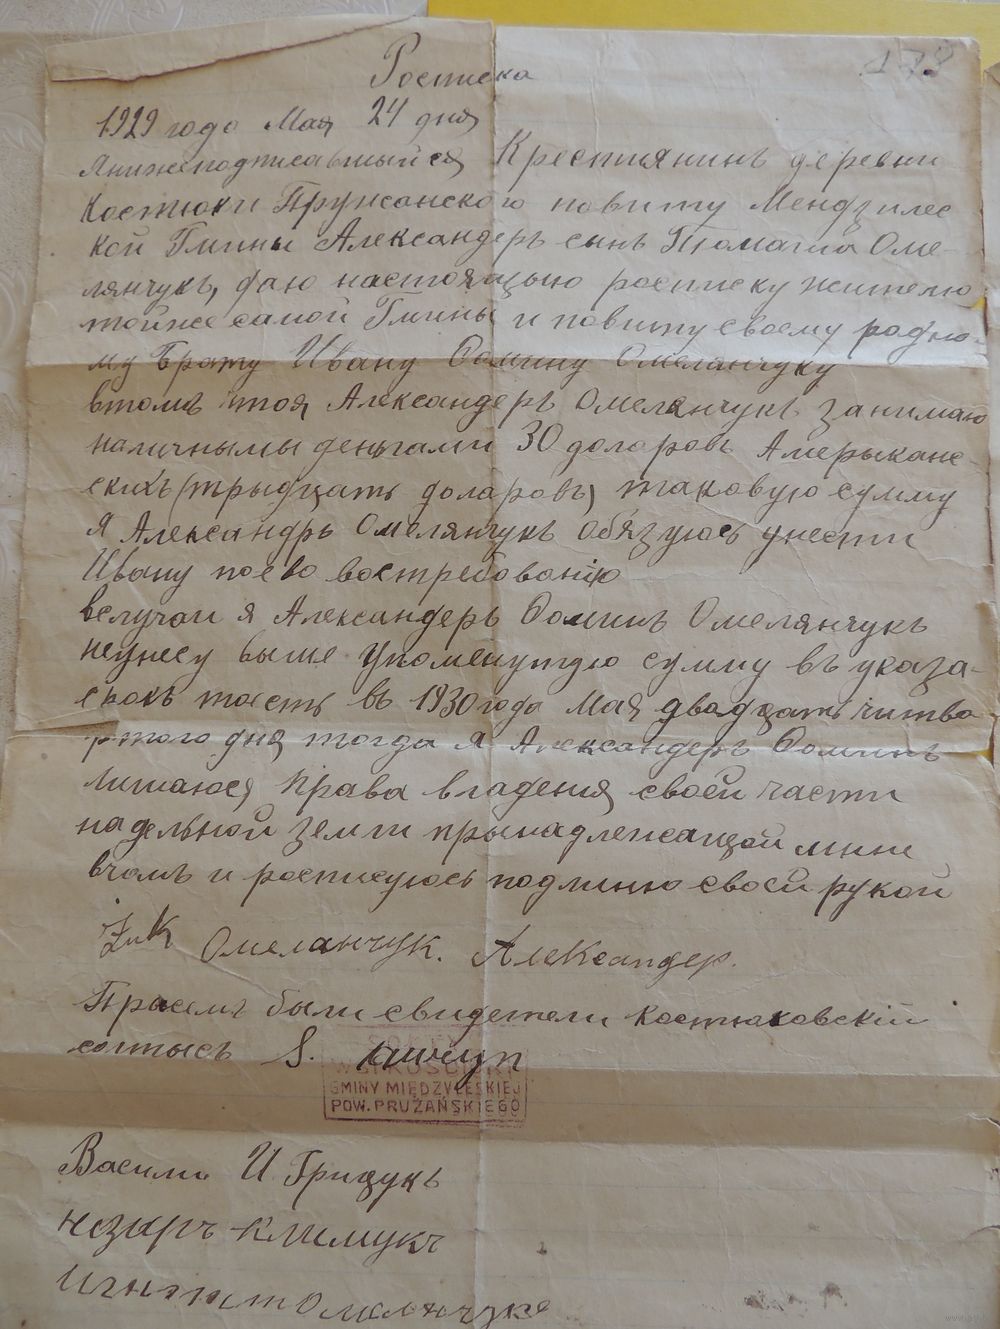 178
Росписка
1929 года Мая 24 дня
Янижеподписавшыйся Крестиянинъ деревни
Костюки Пружанского повиту Мендзылес
кой Гмины Александеръ сынъ Оме-
лянчукъ, даю настоящью росписку жителю
тойже самой Гмины и повиту своему родно-
му Брату Ивану Фомину Омелянчуку
втомъ штоя Александеръ Омелянчукъ занимаю
наличнымы деньгами 30 доларовъ Амерыканс-
скихъ (трыдцать доларовъ) таковую сумму
Я Александръ Омелянчукъ обязуюсь унести
Ивану поево востребованію
вслучаи я Александеръ Фоминъ Омелянчукъ
неунесу выше упоменутую сумму въ указа-
срокъ тоесть въ 1930 года Мая двадцать читва
ртого дня тогда я Александеръ Фоминъ
лишаюся права владения своей части
надельной земли прынадлежащой мине
вчомъ и росписуюсь подлиню своей рукой
Омеланчук. Александер.
Прысемъ были свидетели Костюковскій
солтысъ S.
GMINY MIĘDZYLESKIEJ
POW. PRUŻAŃSKIEGO
Васили И Грицукъ
Назаръ Климукъ
Игнат Омеланчукъ